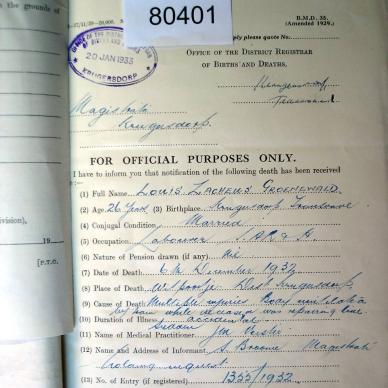 80401
B.M.D. 35.
(Amended 1929.)
reply please quote No.
OFFICE OF THE DISTRICT REGISTRAR
OF BIRTHS AND DEATHS,
20 JAN 1933
KRUGERSDORP
Krugersdorp
Transvaal
Magistrate
Krugersdorp.
the grounds of
FOR OFFICIAL PURPOSES ONLY.
I have to inform you that notification of the following death has been received
(1) Full Name Groenewald
(2) Age 26 years (3) Birthplace Krugersdorp Transvaal
(4) Conjugal Condition Married
(5) Occupation Labourer S.A.R. & H.
(6) Nature of Pension drawn (if any) Nil
(7) Date of Death 6th December 1932
(8) Place of Death Dist Krugersdorp
(9) Cause of Death Multiple injuries Body mutilated
by train while deceased was repairing line
(10) Duration of Illness accidental
Sudden
(11) Name of Medical Practitioner
(12) Name and Address of Informant Magistrate
inquest
(13) No. of Entry (if registered) 1353/1932
vision),
19
[P.T.O.